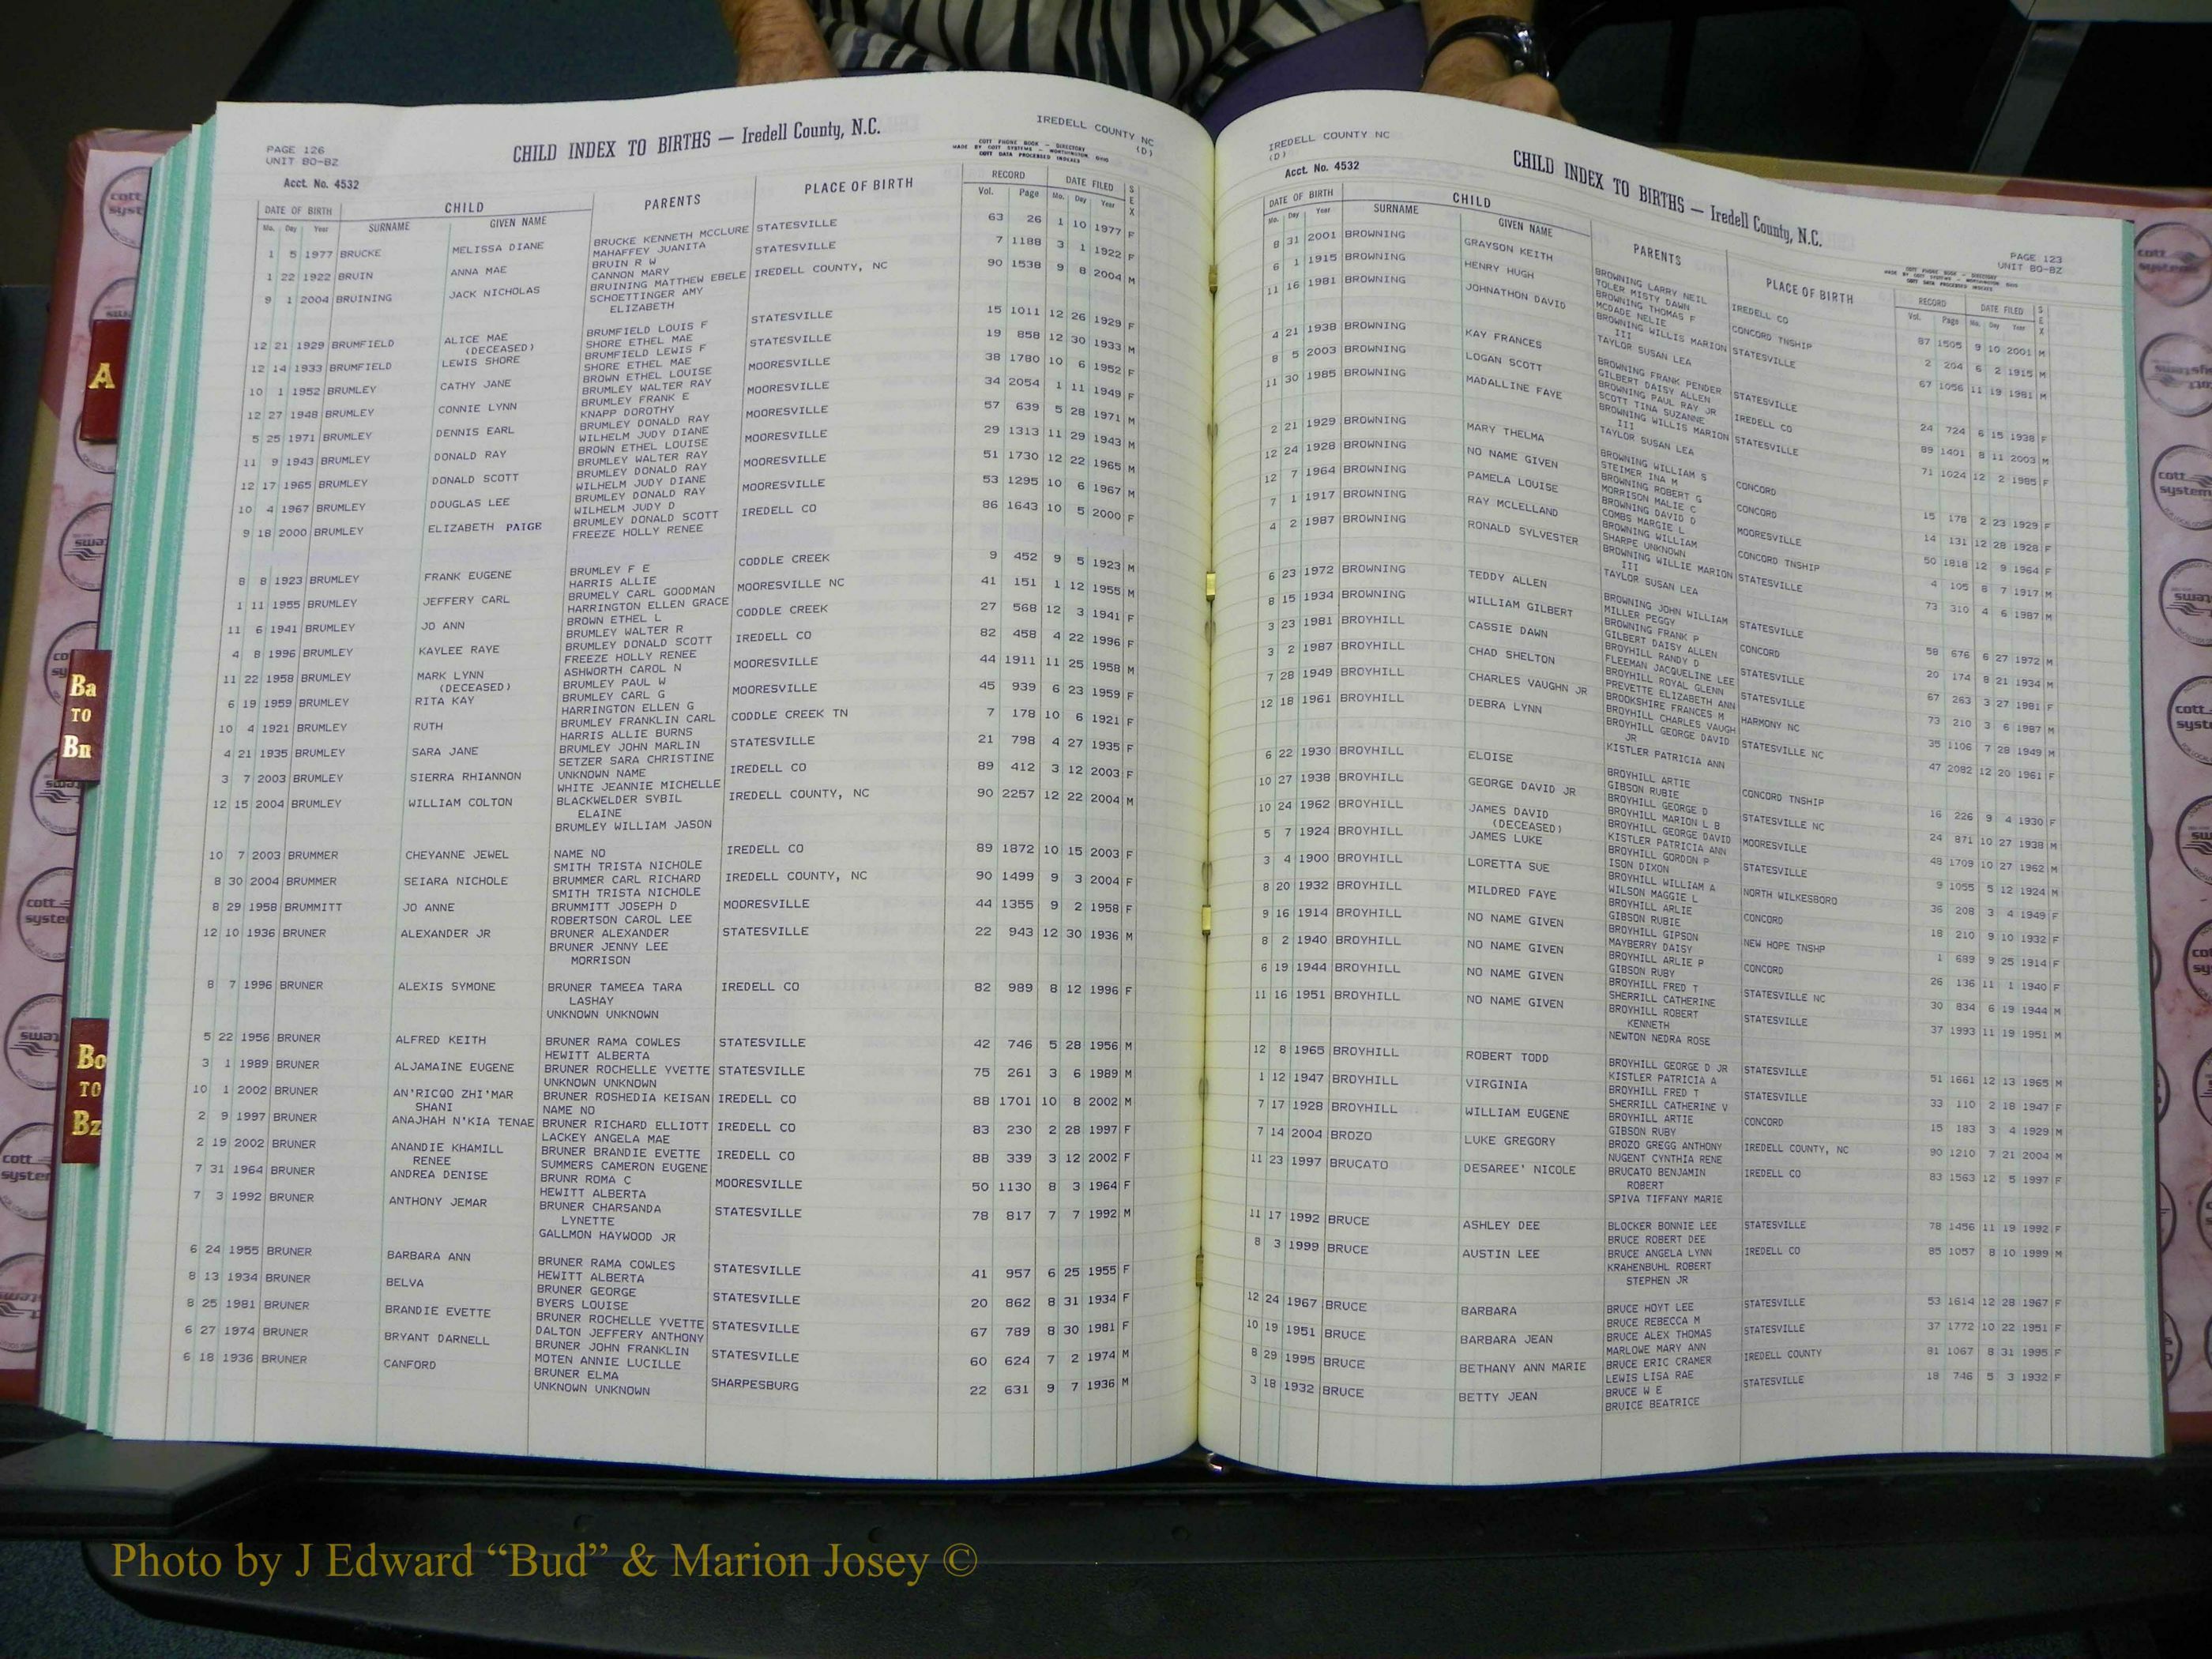 PAGE 126
UNIT BO-BZ
CHILD INDEX TO BIRTHS — Iredell County, N.C.
IREDELL COUNTY NC
(D)
COTT PHONE BOOK - DIRECTORY
MADE BY COTT SYSTEMS - WORTHINGTON, OHIO
COTT DATA PROCESSED INDEXES
Acct. No. 4532
DATE OF BIRTH CHILD PARENTS PLACE OF BIRTH RECORD DATE FILED SEX
Mo. Day Year SURNAME GIVEN NAME Vol. Page Mo. Day Year
1 5 1977 BRUCKE MELISSA DIANE BRUCKE KENNETH MCCLURE STATESVILLE 63 26 1 10 1977 F
MAHAFFEY JUANITA
1 22 1922 BRUIN ANNA MAE BRUIN R W STATESVILLE 7 1188 3 1 1922 F
CANNON MARY
9 1 2004 BRUINING JACK NICHOLAS BRUINING MATTHEW EBELE IREDELL COUNTY, NC 90 1538 9 8 2004 M
SCHOETTINGER AMY
ELIZABETH
12 21 1929 BRUMFIELD ALICE MAE BRUMFIELD LOUIS F STATESVILLE 15 1011 12 26 1929 F
(DECEASED) SHORE ETHEL MAE
12 14 1933 BRUMFIELD LEWIS SHORE BRUMFIELD LEWIS F STATESVILLE 19 858 12 30 1933 M
SHORE ETHEL MAE
10 1 1952 BRUMLEY CATHY JANE BROWN ETHEL LOUISE MOORESVILLE 38 1780 10 6 1952 F
BRUMLEY WALTER RAY
12 27 1948 BRUMLEY CONNIE LYNN BRUMLEY FRANK E MOORESVILLE 34 2054 1 11 1949 F
KNAPP DOROTHY
5 25 1971 BRUMLEY DENNIS EARL BRUMLEY DONALD RAY MOORESVILLE 57 639 5 28 1971 M
WILHELM JUDY DIANE
11 9 1943 BRUMLEY DONALD RAY BROWN ETHEL LOUISE MOORESVILLE 29 1313 11 29 1943 M
BRUMLEY WALTER RAY
12 17 1965 BRUMLEY DONALD SCOTT BRUMLEY DONALD RAY MOORESVILLE 51 1730 12 22 1965 M
WILHELM JUDY DIANE
10 4 1967 BRUMLEY DOUGLAS LEE BRUMLEY DONALD RAY MOORESVILLE 53 1295 10 6 1967 M
WILHELM JUDY D
9 18 2000 BRUMLEY ELIZABETH PAIGE BRUMLEY DONALD SCOTT IREDELL CO 86 1643 10 5 2000 F
FREEZE HOLLY RENEE
8 8 1923 BRUMLEY FRANK EUGENE BRUMLEY F E CODDLE CREEK 9 452 9 5 1923 M
HARRIS ALLIE
1 11 1955 BRUMLEY JEFFERY CARL BRUMELY CARL GOODMAN MOORESVILLE NC 41 151 1 12 1955 M
HARRINGTON ELLEN GRACE
11 6 1941 BRUMLEY JO ANN BROWN ETHEL L CODDLE CREEK 27 568 12 3 1941 F
BRUMLEY WALTER R
4 8 1996 BRUMLEY KAYLEE RAYE BRUMLEY DONALD SCOTT IREDELL CO 82 458 4 22 1996 F
FREEZE HOLLY RENEE
11 22 1958 BRUMLEY MARK LYNN ASHWORTH CAROL N MOORESVILLE 44 1911 11 25 1958 M
(DECEASED) BRUMLEY PAUL W
6 19 1959 BRUMLEY RITA KAY BRUMLEY CARL G MOORESVILLE 45 939 6 23 1959 F
HARRINGTON ELLEN G
10 4 1921 BRUMLEY RUTH BRUMLEY FRANKLIN CARL CODDLE CREEK TN 7 178 10 6 1921 F
HARRIS ALLIE BURNS
4 21 1935 BRUMLEY SARA JANE BRUMLEY JOHN MARLIN STATESVILLE 21 798 4 27 1935 F
SETZER SARA CHRISTINE
3 7 2003 BRUMLEY SIERRA RHIANNON UNKNOWN NAME IREDELL CO 89 412 3 12 2003 F
WHITE JEANNIE MICHELLE
12 15 2004 BRUMLEY WILLIAM COLTON BLACKWELDER SYBIL IREDELL COUNTY, NC 90 2257 12 22 2004 M
ELAINE
BRUMLEY WILLIAM JASON
10 7 2003 BRUMMER CHEYANNE JEWEL NAME NO IREDELL CO 89 1872 10 15 2003 F
SMITH TRISTA NICHOLE
8 30 2004 BRUMMER SEIARA NICHOLE BRUMMER CARL RICHARD IREDELL COUNTY, NC 90 1499 9 3 2004 F
SMITH TRISTA NICHOLE
8 29 1958 BRUMMITT JO ANNE BRUMMITT JOSEPH D MOORESVILLE 44 1355 9 2 1958 F
ROBERTSON CAROL LEE
12 10 1936 BRUNER ALEXANDER JR BRUNER ALEXANDER STATESVILLE 22 943 12 30 1936 M
BRUNER JENNY LEE
MORRISON
8 7 1996 BRUNER ALEXIS SYMONE BRUNER TAMEEA TARA IREDELL CO 82 989 8 12 1996 F
LASHAY
UNKNOWN UNKNOWN
5 22 1956 BRUNER ALFRED KEITH BRUNER RAMA COWLES STATESVILLE 42 746 5 28 1956 M
HEWITT ALBERTA
3 1 1989 BRUNER ALJAMAINE EUGENE BRUNER ROCHELLE YVETTE STATESVILLE 75 261 3 6 1989 M
UNKNOWN UNKNOWN
10 1 2002 BRUNER AN'RICQO ZHI'MAR BRUNER ROSHEDIA KEISAN IREDELL CO 88 1701 10 8 2002 M
SHANI NAME NO
2 9 1997 BRUNER ANAJHAH N'KIA TENAE BRUNER RICHARD ELLIOTT IREDELL CO 83 230 2 28 1997 F
LACKEY ANGELA MAE
2 19 2002 BRUNER ANANDIE KHAMILL BRUNER BRANDIE EVETTE IREDELL CO 88 339 3 12 2002 F
RENEE SUMMERS CAMERON EUGENE
7 31 1964 BRUNER ANDREA DENISE BRUNR ROMA C MOORESVILLE 50 1130 8 3 1964 F
HEWITT ALBERTA
7 3 1992 BRUNER ANTHONY JEMAR BRUNER CHARSANDA STATESVILLE 78 817 7 7 1992 M
LYNETTE
GALLMON HAYWOOD JR
6 24 1955 BRUNER BARBARA ANN BRUNER RAMA COWLES STATESVILLE 41 957 6 25 1955 F
HEWITT ALBERTA
8 13 1934 BRUNER BELVA BRUNER GEORGE STATESVILLE 20 862 8 31 1934 F
BYERS LOUISE
8 25 1981 BRUNER BRANDIE EVETTE BRUNER ROCHELLE YVETTE STATESVILLE 67 789 8 30 1981 F
DALTON JEFFERY ANTHONY
6 27 1974 BRUNER BRYANT DARNELL BRUNER JOHN FRANKLIN STATESVILLE 60 624 7 2 1974 M
MOTEN ANNIE LUCILLE
6 18 1936 BRUNER CANFORD BRUNER ELMA SHARPESBURG 22 631 9 7 1936 M
UNKNOWN UNKNOWN
IREDELL COUNTY NC
(D)
CHILD INDEX TO BIRTHS — Iredell County, N.C.
PAGE 123
UNIT BO-BZ
Acct. No. 4532
COTT PHONE BOOK - DIRECTORY
MADE BY COTT SYSTEMS - WORTHINGTON, OHIO
COTT DATA PROCESSED INDEXES
DATE OF BIRTH CHILD PARENTS PLACE OF BIRTH RECORD DATE FILED SEX
Mo. Day Year SURNAME GIVEN NAME Vol. Page Mo. Day Year
8 31 2001 BROWNING GRAYSON KEITH BROWNING LARRY NEIL IREDELL CO 87 1505 9 10 2001 M
TOLER MISTY DAWN
6 1 1915 BROWNING HENRY HUGH BROWNING THOMAS F CONCORD TNSHIP 2 204 6 2 1915 M
MCDADE NELIE
11 16 1981 BROWNING JOHNATHON DAVID BROWNING WILLIS MARION STATESVILLE 67 1056 11 19 1981 M
III
TAYLOR SUSAN LEA
4 21 1938 BROWNING KAY FRANCES BROWNING FRANK PENDER STATESVILLE 24 724 6 15 1938 F
GILBERT DAISY ALLEN
8 5 2003 BROWNING LOGAN SCOTT BROWNING PAUL RAY JR IREDELL CO 89 1401 8 11 2003 M
SCOTT TINA SUZANNE
11 30 1985 BROWNING MADALLINE FAYE BROWNING WILLIS MARION STATESVILLE 71 1024 12 2 1985 F
III
TAYLOR SUSAN LEA
2 21 1929 BROWNING MARY THELMA BROWNING WILLIAM S CONCORD 15 178 2 23 1929 F
STEIMER INA M
12 24 1928 BROWNING NO NAME GIVEN BROWNING ROBERT G CONCORD 14 131 12 28 1928 F
MORRISON MALIE C
12 7 1964 BROWNING PAMELA LOUISE BROWNING DAVID D MOORESVILLE 50 1818 12 9 1964 F
COMBS MARGIE L
7 1 1917 BROWNING RAY MCLELLAND BROWNING WILLIAM CONCORD TNSHIP 4 105 8 7 1917 M
SHARPE UNKNOWN
4 2 1987 BROWNING RONALD SYLVESTER BROWNING WILLIE MARION STATESVILLE 73 310 4 6 1987 M
III
TAYLOR SUSAN LEA
6 23 1972 BROWNING TEDDY ALLEN BROWNING JOHN WILLIAM STATESVILLE 58 676 6 27 1972 M
MILLER PEGGY
8 15 1934 BROWNING WILLIAM GILBERT BROWNING FRANK P CONCORD 20 174 8 21 1934 M
GILBERT DAISY ALLEN
3 23 1981 BROYHILL CASSIE DAWN BROYHILL RANDY D STATESVILLE 67 263 3 27 1981 F
FLEEMAN JACQUELINE LEE
3 2 1987 BROYHILL CHAD SHELTON BROYHILL ROYAL GLENN STATESVILLE 73 210 3 6 1987 M
PREVETTE ELIZABETH ANN
7 28 1949 BROYHILL CHARLES VAUGHN JR BROOKSHIRE FRANCES M HARMONY NC 35 1106 7 28 1949 M
BROYHILL CHARLES VAUGH
12 18 1961 BROYHILL DEBRA LYNN BROYHILL GEORGE DAVID STATESVILLE NC 47 2082 12 20 1961 F
JR
KISTLER PATRICIA ANN
6 22 1930 BROYHILL ELOISE BROYHILL ARTIE CONCORD TNSHIP 16 226 9 4 1930 F
GIBSON RUBIE
10 27 1938 BROYHILL GEORGE DAVID JR BROYHILL GEORGE D STATESVILLE NC 24 871 10 27 1938 M
BROYHILL MARION L B
10 24 1962 BROYHILL JAMES DAVID BROYHILL GEORGE DAVID MOORESVILLE 48 1709 10 27 1962 M
(DECEASED) KISTLER PATRICIA ANN
5 7 1924 BROYHILL JAMES LUKE BROYHILL GORDON P STATESVILLE 9 1055 5 12 1924 M
ISON DIXON
3 4 1900 BROYHILL LORETTA SUE BROYHILL WILLIAM A NORTH WILKESBORO 36 208 3 4 1949 F
WILSON MAGGIE L
8 20 1932 BROYHILL MILDRED FAYE BROYHILL ARLIE CONCORD 18 210 9 10 1932 F
GIBSON RUBIE
9 16 1914 BROYHILL NO NAME GIVEN BROYHILL GIPSON NEW HOPE TNSHP 1 689 9 25 1914 F
MAYBERRY DAISY
8 2 1940 BROYHILL NO NAME GIVEN BROYHILL ARLIE P CONCORD 26 136 11 1 1940 F
GIBSON RUBY
6 19 1944 BROYHILL NO NAME GIVEN BROYHILL FRED T STATESVILLE NC 30 834 6 19 1944 M
SHERRILL CATHERINE
11 16 1951 BROYHILL NO NAME GIVEN BROYHILL ROBERT STATESVILLE 37 1993 11 19 1951 M
KENNETH
NEWTON NEDRA ROSE
12 8 1965 BROYHILL ROBERT TODD BROYHILL GEORGE D JR STATESVILLE 51 1661 12 13 1965 M
KISTLER PATRICIA A
1 12 1947 BROYHILL VIRGINIA BROYHILL FRED T STATESVILLE 33 110 2 18 1947 F
SHERRILL CATHERINE V
7 17 1928 BROYHILL WILLIAM EUGENE BROYHILL ARTIE CONCORD 15 183 3 4 1929 M
GIBSON RUBY
7 14 2004 BROZO LUKE GREGORY BROZO GREGG ANTHONY IREDELL COUNTY, NC 90 1210 7 21 2004 M
NUGENT CYNTHIA RENE
11 23 1997 BRUCATO DESAREE' NICOLE BRUCATO BENJAMIN IREDELL CO 83 1563 12 5 1997 F
ROBERT
SPIVA TIFFANY MARIE
11 17 1992 BRUCE ASHLEY DEE BLOCKER BONNIE LEE STATESVILLE 78 1456 11 19 1992 F
BRUCE ROBERT DEE
8 3 1999 BRUCE AUSTIN LEE BRUCE ANGELA LYNN IREDELL CO 85 1057 8 10 1999 M
KRAHENBUHL ROBERT
STEPHEN JR
12 24 1967 BRUCE BARBARA BRUCE HOYT LEE STATESVILLE 53 1614 12 28 1967 F
BRUCE REBECCA M
10 19 1951 BRUCE BARBARA JEAN BRUCE ALEX THOMAS STATESVILLE 37 1772 10 22 1951 F
MARLOWE MARY ANN
8 29 1995 BRUCE BETHANY ANN MARIE BRUCE ERIC CRAMER IREDELL COUNTY 81 1067 8 31 1995 F
LEWIS LISA RAE
3 18 1932 BRUCE BETTY JEAN BRUCE W E STATESVILLE 18 746 5 3 1932 F
BRUICE BEATRICE
A
Ba
TO
Bn
Bo
TO
Bz
Photo by J Edward “Bud” & Marion Josey ©